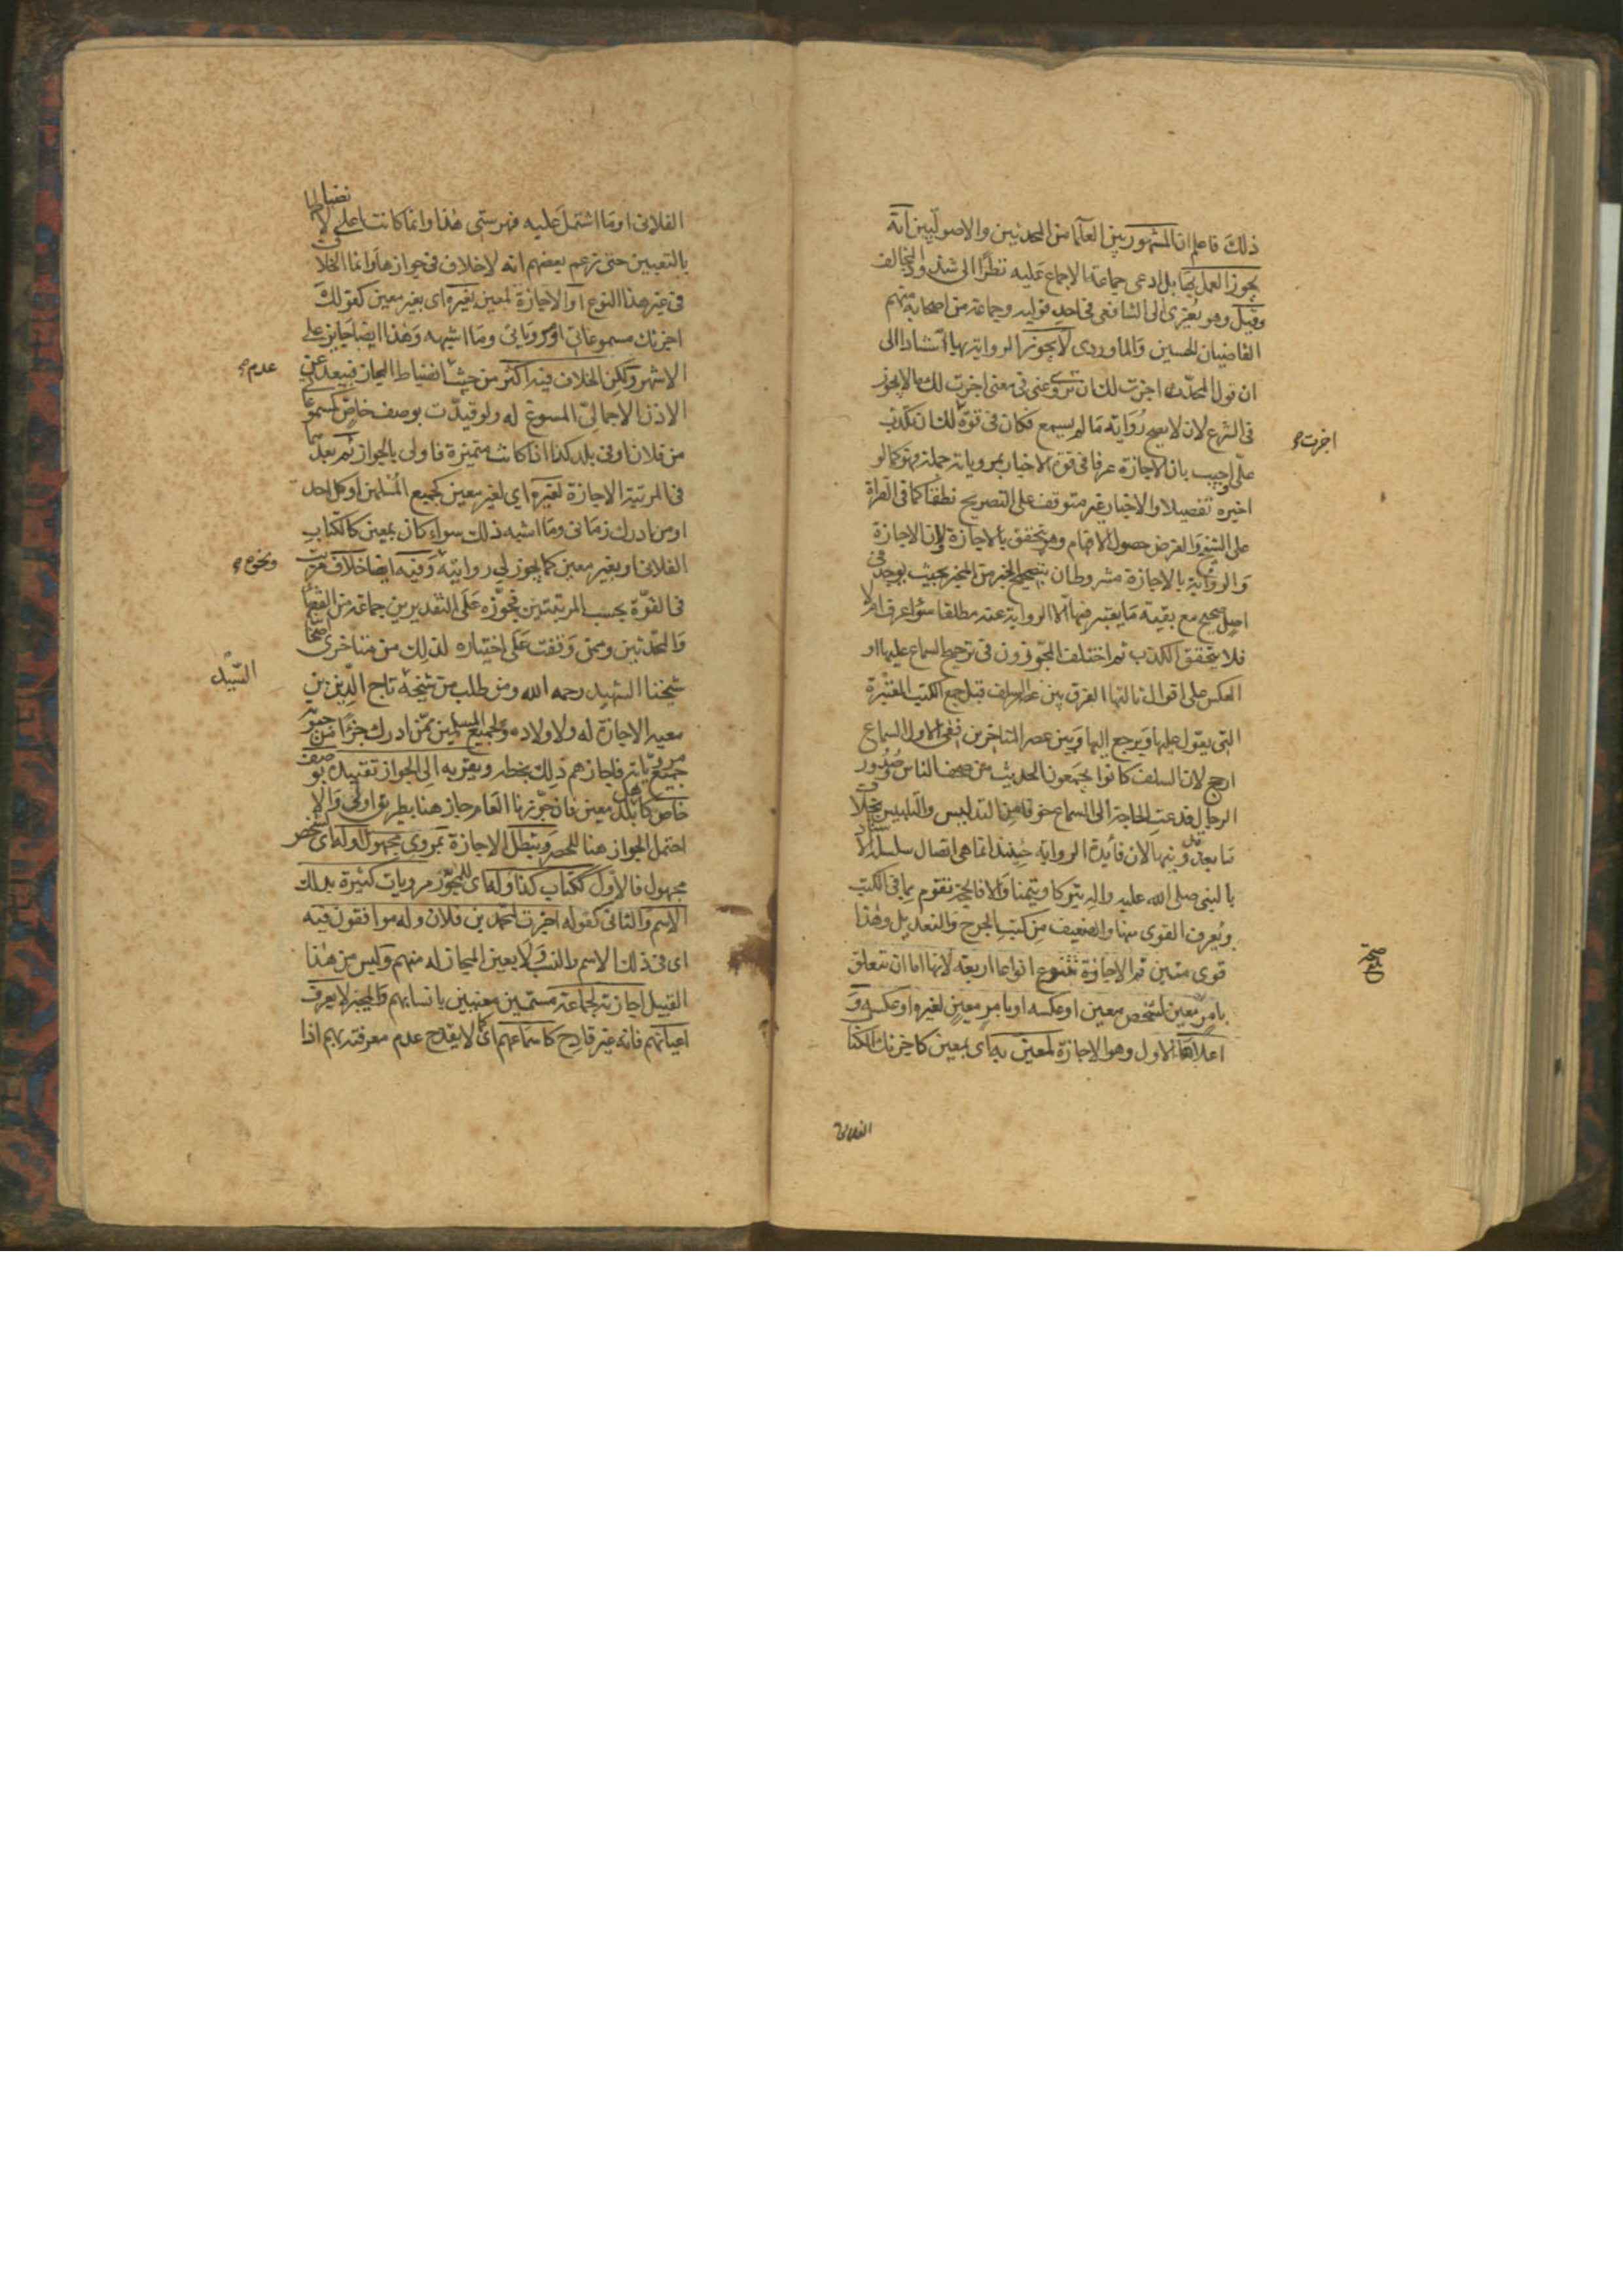 ذلك فاعلم ان المشهور بين العلماء من المحدثين والاصوليين انه
يجوز العمل بها بل ادعى جماعة الاجماع عليه نظرا الى شذوذ المخالف
وقيل وهو يُعزى الى الشافعي في احد قوليه وجماعة من اصحابه منهم
القاضيان الحسين والماوردي لا يجوز الرواية بها استنادا الى
ان قول المحدث اجزت لك ان تروى عنى في معنى اجزت لك ما لا يجوز
في الشرع لانه لا يصح رواية ما لم يسمع فكان في قوة لك ان تكذب
اجزت
على واجيب بان الاجازة عرفا في قوة الاخبار بمروياته جملة فهو كما لو
اخبره تفصيلا والاخبار غير متوقف على التصريح نطقا كما في القراءة
على الشيخ والغرض حصول الافهام وهو يتحقق بالاجازة ولان الاجازة
والرواية بالاجازة مشروطان بتصحيح الخبر من المخبر بحيث يوجد في
اصل صحيح مع بقية ما يعتبر فيها لا الرواية عنه مطلقا سواء عرف ام لا
فلا يتحقق الكذب ثم اختلف المجوزون في ترجيح السماع عليها او
العكس على اقوال ثالثها الفرق بين عصر السلف قبل جمع الكتب المعتبرة
التي يعول عليها ويرجع اليها وبين عصر المتاخرين ففي الاول السماع
ارجح لان السلف كانوا يجمعون الحديث من صحف الناس وصدور
الرجال فدعت الحاجة الى السماع خوفا من التدليس والتلبيس بخلاف
ما بعد تدوينها لان فائدة الرواية حينئذ انما هي اتصال سلسلة الاسناد
بالنبي صلى الله عليه واله تبركا وتيمنا والا فالحجة تقوم بما في الكتب
ويعرف القوى منها والضعيف من كتب الجرح والتعديل وهذا
قوى متين ثم الاجازة تتنوع انواعا اربعة لانها اما ان تتعلق
بامر معين لشخص معين او عكسه او بامر معين لغيره او عكسه و
اعلاها الاول وهو الاجازة لمعين به اى بمعين كاجزتك الكتاب
الفلانى
الفلانى او ما اشتمل عليه فهرستى هذا وانما كانت اعلى لانضباطها
بالتعيين حتى زعم بعضهم انه لا خلاف في جوازها وانما الخلاف
في غير هذا النوع او الاجازة لمعين بغيره اى بغير معين كقولك
اجزتك مسموعاتى او مروياتى وما اشبهه وهذا ايضا جايز على
الاشهر ولكن الخلاف فيه اكثر من حيث انضباط المجاز فيبعد عن
عدم
الاذن الاجمالى المسوغ له ولو قيدت بوصف خاص كمسموعاتى
من فلان او في بلد كذا اذا كانت متميزة فاولى بالجواز ثم بعدها
في المرتبة الاجازة لغيره اى لغير معين كجميع المسلمين او كل احد
او من ادرك زمانى وما اشبه ذلك سواء كان بمعين كالكتاب
الفلانى او بغير معين كما يجوز لى روايته وفيه ايضا خلاف مرتب
ونحوه
في القوة بحسب المرتبتين فجوزه على التقديرين جماعة من الفقهاء
والمحدثين وممن وقفت على اختياره لذلك من متاخرى اصحابنا
شيخنا الشهيد رحمه الله وقد طلب من شيخه تاج الدين بن
السيد
معيه الاجازة له ولاولاده ولجميع المسلمين ممن ادرك جزءا من حيوته
جميع مروياته فاجازهم ذلك بخطه ويقربه الى الجواز تقييده بوصف
خاص كاهل بلد معين فان جوزنا العام جاز هنا بطريق اولى والا
احتمل الجواز هنا للحصر وتبطل الاجازة بمروى مجهول او له اى لشخص
مجهول فالاول ككتاب كذا وله اى للمجوز مرويات كثيرة بذلك
الاسم والثانى كقوله اجزت لمحمد بن فلان وله موافقون فيه
اى في ذلك الاسم والنسب ولا يعين المجاز له منهم وليس من هذا
القبيل اجازته لجماعة مسمين معينين بانسابهم والمجيز لا يعرف
اعيانهم فانه غير قادح كاسماعهم اى لا يقدح عدم معرفته بهم اذا